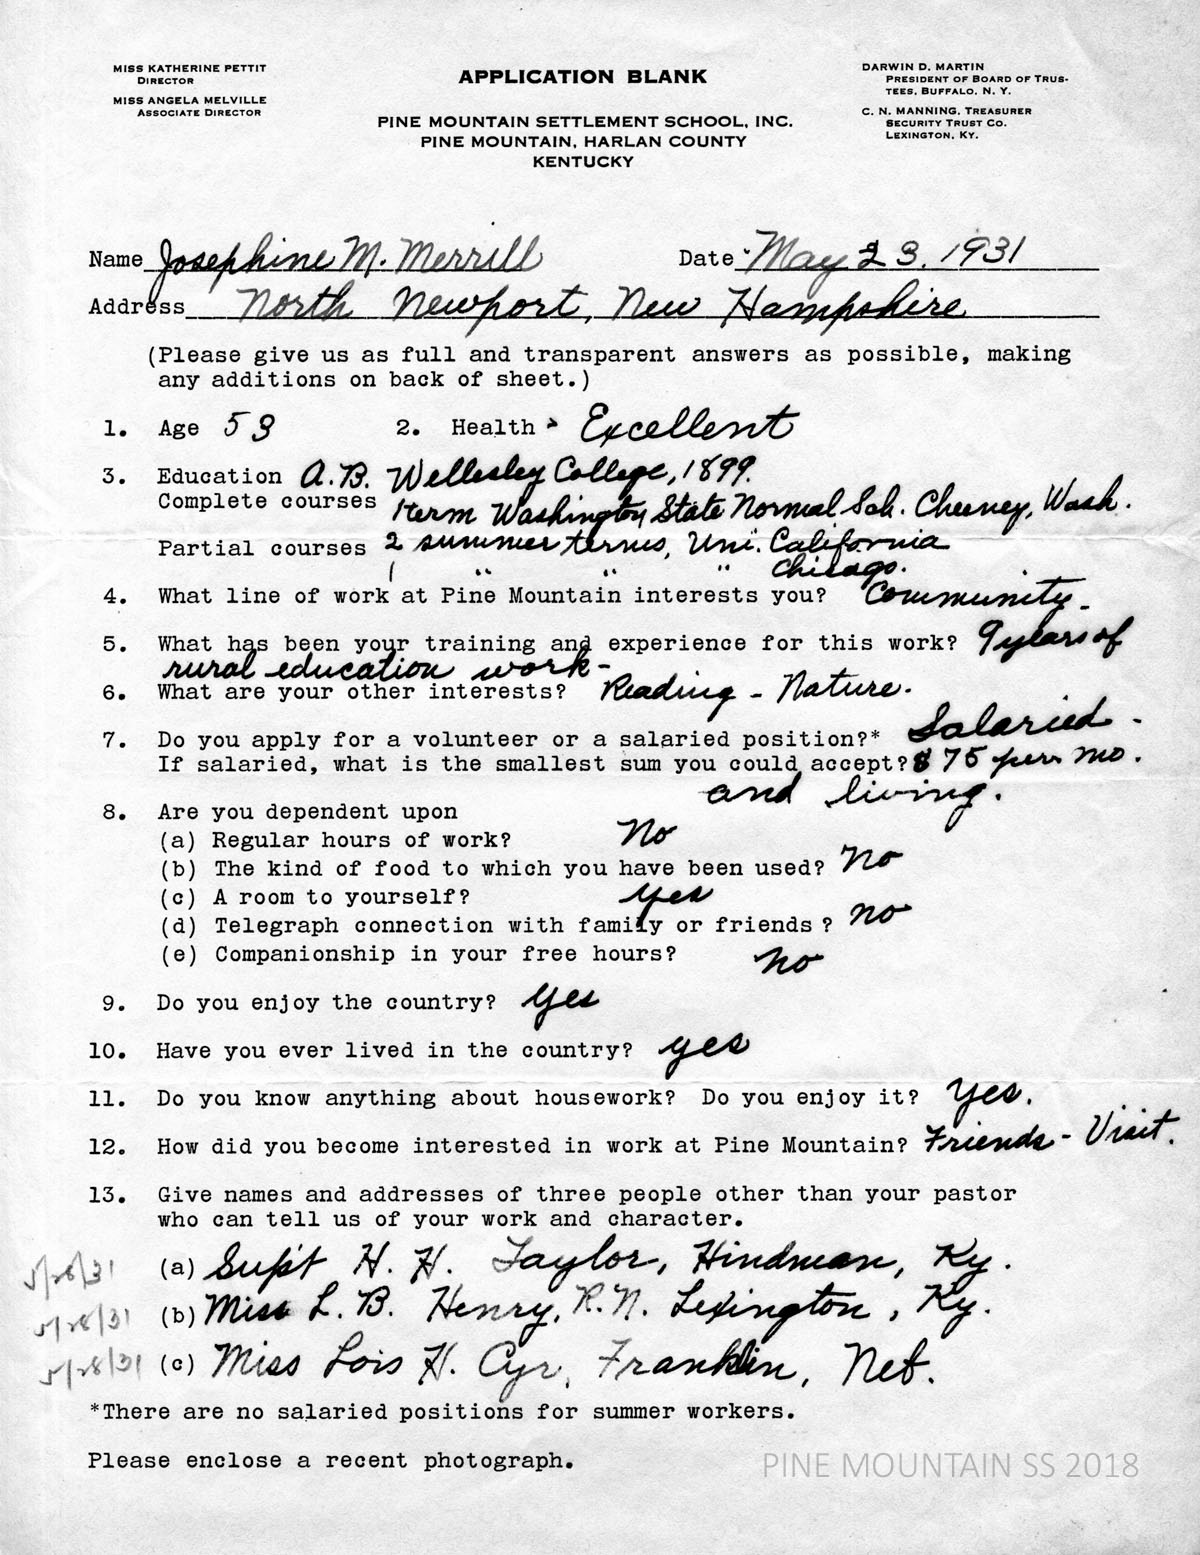 MISS KATHERINE PETTIT
DIRECTOR
MISS ANGELA MELVILLE
ASSOCIATE DIRECTOR
APPLICATION BLANK
PINE MOUNTAIN SETTLEMENT SCHOOL, INC.
PINE MOUNTAIN, HARLAN COUNTY
KENTUCKY
DARWIN D. MARTIN
PRESIDENT OF BOARD OF TRUS-
TEES, BUFFALO, N. Y.
C. N. MANNING, TREASURER
SECURITY TRUST CO.
LEXINGTON, KY.
Name Josephine M. Merrill Date May 23, 1931
Address North Newport, New Hampshire
(Please give us as full and transparent answers as possible, making
any additions on back of sheet.)
1. Age 53 2. Health Excellent
3. Education A.B. Wellesley College, 1899.
Complete courses 1 term Washington State Normal Sch. Cheeney, Wash.
Partial courses 2 summer terms, Uni. California
1 " " " Chicago.
4. What line of work at Pine Mountain interests you? Community-
5. What has been your training and experience for this work? 9 years of
rural education work-
6. What are your other interests? Reading - Nature.
7. Do you apply for a volunteer or a salaried position?* Salaried-
If salaried, what is the smallest sum you could accept? $75 per mo.
and living.
8. Are you dependent upon
(a) Regular hours of work? No
(b) The kind of food to which you have been used? No
(c) A room to yourself? yes
(d) Telegraph connection with family or friends? no
(e) Companionship in your free hours? no
9. Do you enjoy the country? yes
10. Have you ever lived in the country? yes
11. Do you know anything about housework? Do you enjoy it? Yes.
12. How did you become interested in work at Pine Mountain? Friends - Visit.
13. Give names and addresses of three people other than your pastor
who can tell us of your work and character.
5/28/31 (a) Sup't H. H. Taylor, Hindman, Ky.
5/28/31 (b) Miss L. B. Henry, R.N. Lexington, Ky.
5/28/31 (c) Miss Lois H. Cyr, Franklin, Neb.
*There are no salaried positions for summer workers.
Please enclose a recent photograph.
PINE MOUNTAIN SS 2018